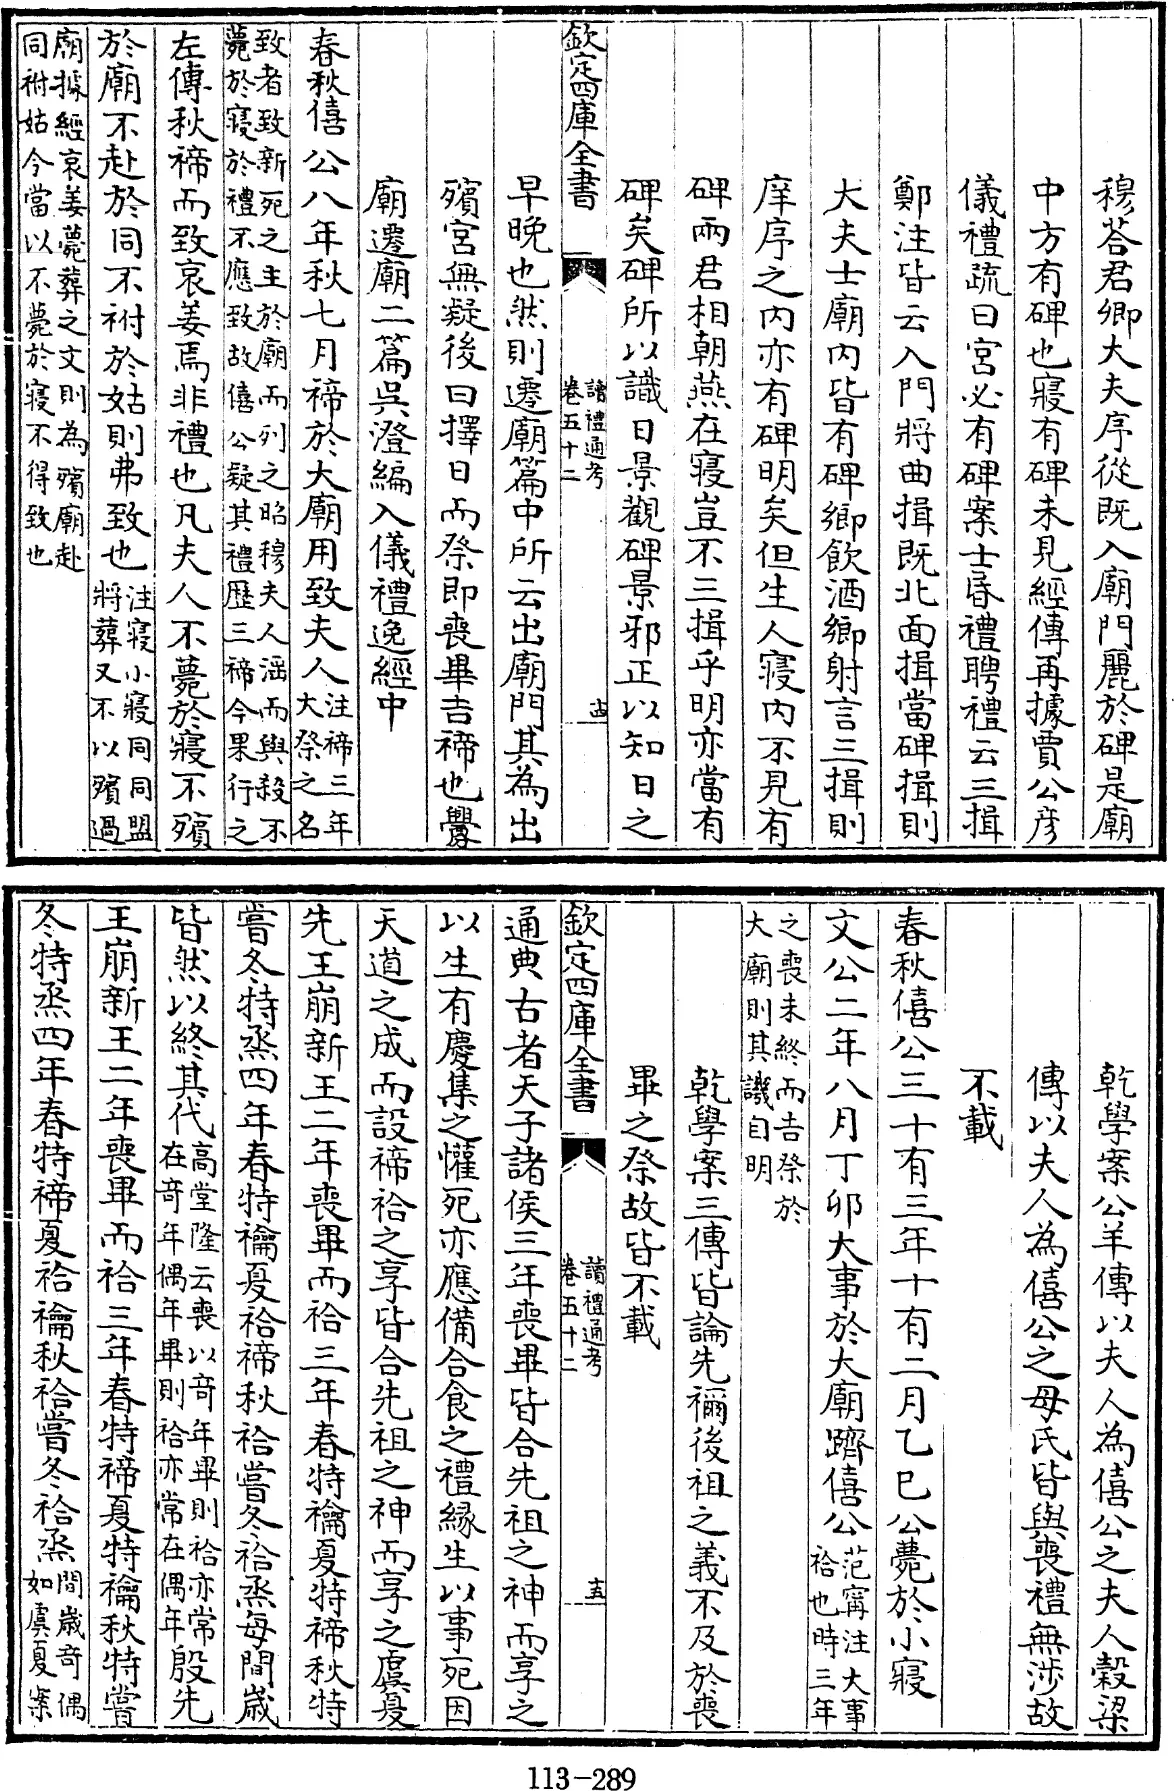 穆荅君卿大夫序從既入廟門麗於碑是廟
中方有碑也寢有碑未見經傳再據賈公彦
儀禮疏曰宮必有碑案士昏禮聘禮云三揖
鄭注皆云入門將曲揖既北面揖當碑揖則
大夫士廟内皆有碑鄉飲酒鄉射言三揖則
庠序之内亦有碑明矣但生人寢内不見有
碑兩君相朝燕在寢豈不三揖乎明亦當有
碑矣碑所以識日景觀碑景邪正以知日之
欽定四庫全書
讀禮通考
卷五十二
十四
早晚也然則遷廟篇中所云出廟門其為出
殯宮無疑後曰擇日而祭即喪畢吉禘也釁
廟遷廟二篇吳澄編入儀禮逸經中
春秋僖公八年秋七月禘於大廟用致夫人
注禘三年
大祭之名
致者致新死之主於廟而列之昭穆夫人淫而與殺不
薨於寢於禮不應致故僖公疑其禮歷三禘今果行之
左傳秋禘而致哀姜焉非禮也凡夫人不薨於寢不殯
於廟不赴於同不祔於姑則弗致也
注寢小寢同同盟
將葬又不以殯過
廟據經哀姜薨葬之文則為殯廟赴
同祔姑今當以不薨於寢不得致也
乾學案公羊傳以夫人為僖公之夫人穀梁
傳以夫人為僖公之母氏皆與喪禮無涉故
不載
春秋僖公三十有三年十有二月乙巳公薨於小寢
文公二年八月丁卯大事於大廟躋僖公
范甯注大事
祫也時三年
之喪未終而吉祭於
大廟則其譏自明
乾學案三傳皆論先禰後祖之義不及於喪
畢之祭故皆不載
欽定四庫全書
讀禮通考
卷五十二
十五
通典古者天子諸侯三年喪畢皆合先祖之神而享之
以生有慶集之懽死亦應備合食之禮縁生以事死因
天道之成而設禘祫之享皆合先祖之神而享之虞夏
先王崩新王二年喪畢而祫三年春特禴夏特禘秋特
嘗冬特烝四年春特禴夏祫禘秋祫嘗冬祫烝每間歲
皆然以終其代
高堂隆云喪以奇年畢則祫亦常
在奇年偶年畢則祫亦常在偶年
殷先
王崩新王二年喪畢而祫三年春特禘夏特禴秋特嘗
冬特烝四年春特禘夏祫禴秋祫嘗冬祫烝
間歲奇偶
如虞夏案
113-289